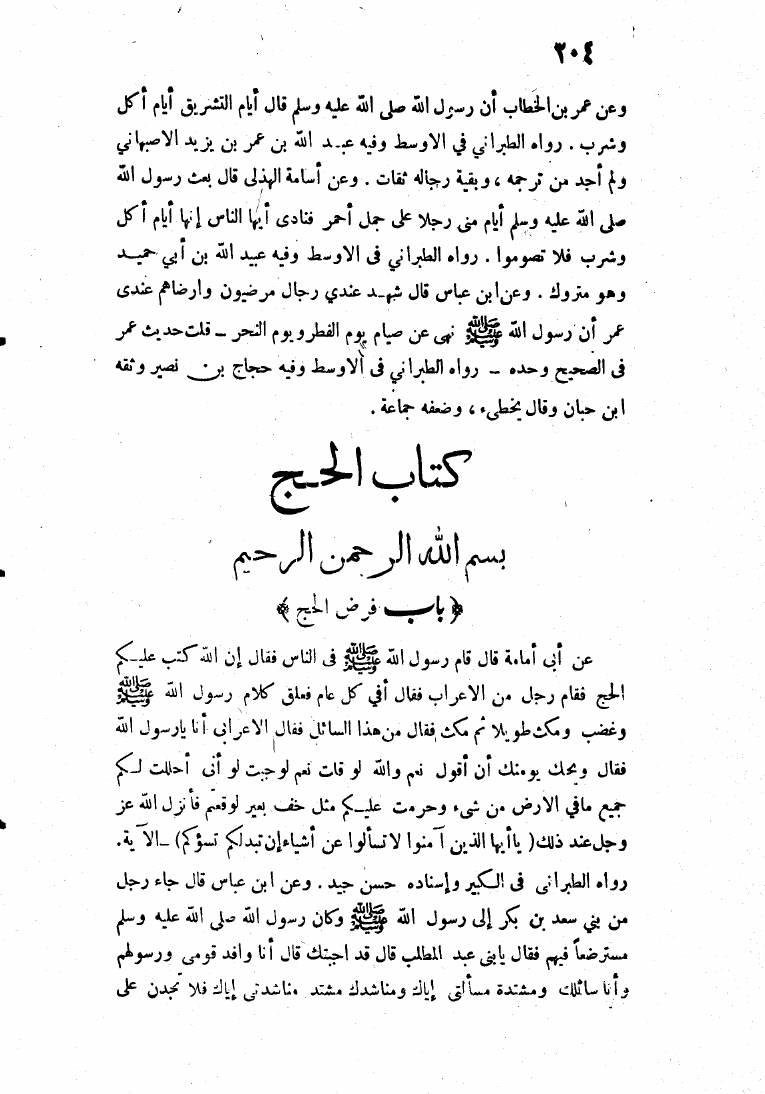 ٢٠٤
وعن عمر بن الخطاب أن رسول الله صلى الله عليه وسلم قال أيام التشريق أيام أكل
وشرب . رواه الطبراني في الاوسط وفيه عبد الله بن عمر بن يزيد الاصبهاني
ولم أجد من ترجمه ، وبقية رجاله ثقات . وعن أسامة الهذلى قال بعث رسول الله
صلى الله عليه وسلم أيام منى رجلا على جمل أحمر فنادى أيها الناس إنها أيام أكل
وشرب فلا تصوموا . رواه الطبراني فى الاوسط وفيه عبيد الله بن أبي حميد
وهو متروك . وعن ابن عباس قال شهد عندي رجال مرضيون وارضاهم عندى
عمر أن رسول الله ﷺ نهى عن صيام يوم الفطر ويوم النحر ـ قلت حديث عمر
فى الصحيح وحده ـ رواه الطبراني فى الاوسط وفيه حجاج بن نصير وثقه
ابن حبان وقال يخطىء ، وضعفه جماعة .
كتاب الحج
بسم الله الرحمن الرحيم
﴿ باب فرض الحج ﴾
عن أبى أمامة قال قام رسول الله ﷺ فى الناس فقال إن الله كتب عليكم
الحج فقام رجل من الاعراب فقال أفي كل عام فعلق كلام رسول الله ﷺ
وغضب ومكث طويلا ثم مكث فقال من هذا السائل فقال الاعرابى أنا يارسول الله
فقال ويحك يومنك أن أقول نعم والله لو قلت نعم لوجبت لو أنى أحللت لكم
جميع مافي الارض من شىء وحرمت عليكم مثل خف بعير لوقعتم فأنزل الله عز
وجل عند ذلك ( ياأيها الذين آمنوا لا تسألوا عن أشياء إن تبدلكم تسؤكم ) ـ الآية .
رواه الطبرانى فى الكبير وإسناده حسن جيد . وعن ابن عباس قال جاء رجل
من بني سعد بن بكر إلى رسول الله ﷺ وكان رسول الله صلى الله عليه وسلم
مسترضعاً فيهم فقال يابنى عبد المطلب قال قد اجبتك قال أنا وافد قومى ورسولهم
وأنا سائلك ومشتدة مسألتى إياك ومناشدك مشتد مناشدتى إياك فلا تجدن على